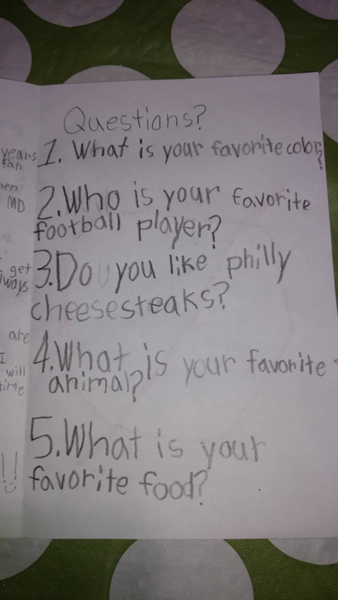 Questions?
years 1. What is your favorite color?
fan
hen
MD 2. Who is your favorite
football player?
get 3. Do you like philly
always
cheesesteaks?
are 4. What is your favorite
I
will animal?
time
5. What is your
!! favorite food?